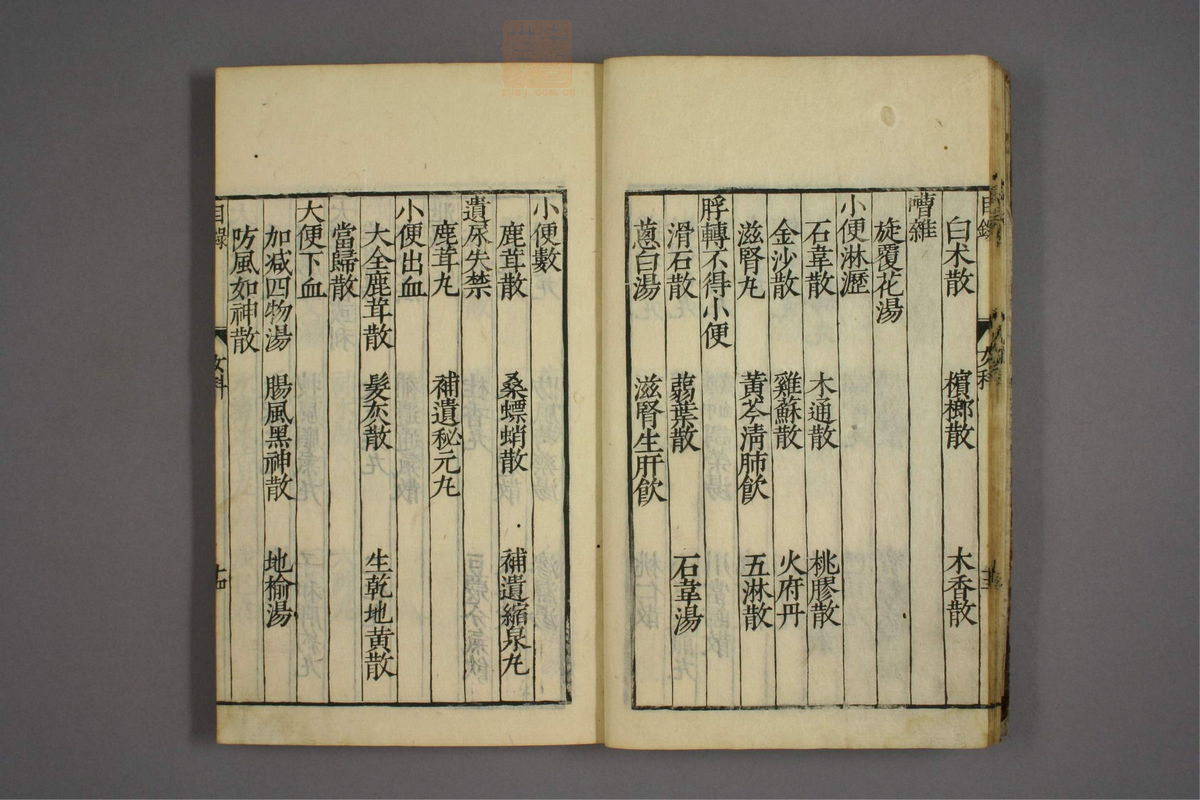 目錄 女科 十三
白朮散 檳榔散 木香散
嘈雜
旋覆花湯
小便淋瀝
石韋散 木通散 桃膠散
金沙散 雞蘇散 火府丹
滋腎丸 黃芩淸肺飮 五淋散
脬轉不得小便
滑石散 蒻葉散 石韋湯
蔥白湯 滋腎生肝飮
小便數
鹿茸散 桑螵蛸散 補遺縮泉丸
遺尿失禁
鹿茸丸 補遺秘元丸
小便出血
大全鹿茸散 髮灰散 生乾地黃散
當歸散
大便下血
加减四物湯 腸風黑神散 地榆湯
防風如神散
目錄 女科 十四